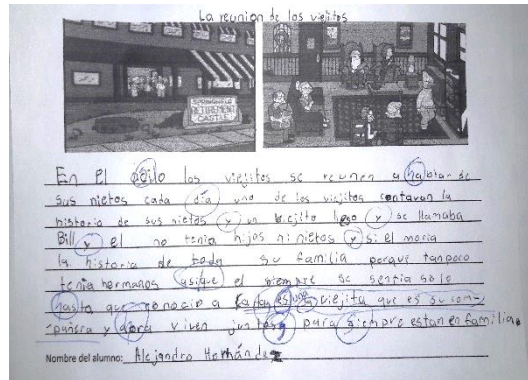 La reunion de los viejitos
SPRINGFIELD
RETIREMENT
CASTLE
En el asilo los viejitos se reunen a hablar de
sus nietos cada día uno de los viejitos contavan la
historia de sus nietos y un viejito llego y se llamaba
Bill y el no tenia hijos ni nietos y si el moria
la historia de toda su familia porque tanpoco
tenia hermanos asique el siempre se sentia solo
hasta que conocio a una viejita que es su com-
pañera y aora viven juntos y para siempre estan en familia.
Nombre del alumno: Alejandro Hernández